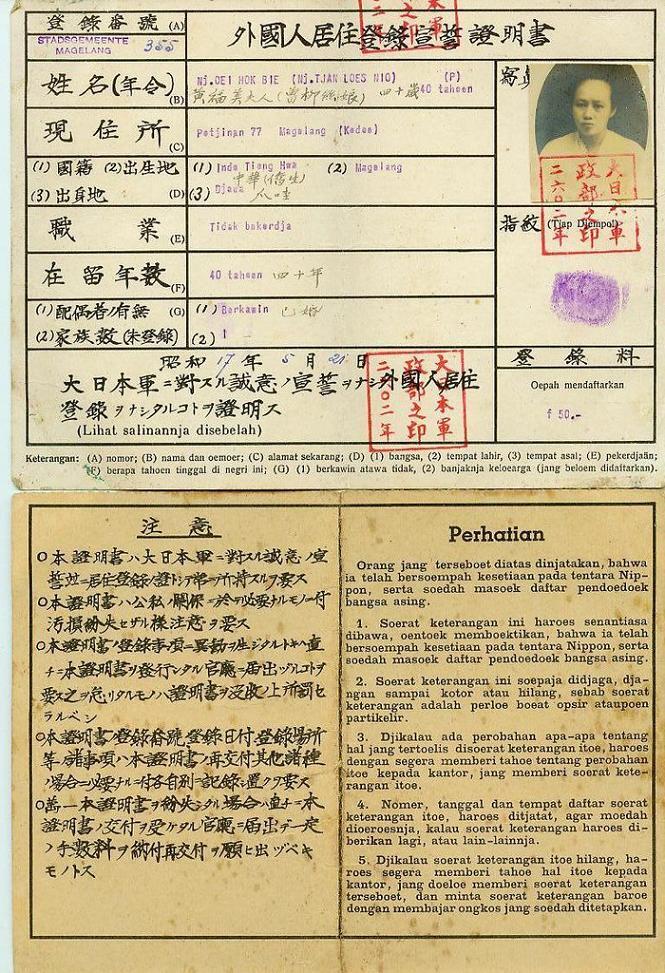 登錄番號 (A)
STADSGEMEENTE
MAGELANG
355
外國人居住登錄宣誓證明書
姓名(年令)
(B)
Nj.OEI HOK BIE (Nj.TJAN LOES NIO) (P)
四十歲 40 tahoen
寫真
現住所
(C)
Petjinan 77 Magelang (Kedoe)
(1) 國籍 (2) 出生地
(3) 出身地 (D)
(1) Indo Tiong Hwa (2) Magelang
中華(僑生)
(3) Djawa
爪哇
大日本軍
政部之印
二六〇二年
職業
(E)
Tidak bekerdja
指紋 (Tjap Djempol)
在留年數
(F)
40 tahoen 四十年
(1) 配偶者ノ有無 (G)
(2) 家族數(未登錄)
(1) Berkawin 已婚
(2) 1
昭和 17 年 5 月 21 日
大日本軍ニ對スル誠意ノ宣誓ヲナシ外國人居住
登錄ヲナシタルコトヲ證明ス
(Lihat salinannja disebelah)
大日本軍
政部之印
二六〇二年
登錄料
Oepah mendaftarkan
f 50.-
Keterangan: (A) nomor; (B) nama dan oemoer; (C) alamat sekarang; (D) (1) bangsa, (2) tempat lahir, (3) tempat asal; (E) pekerdjaän;
(F) berapa tahoen tinggal di negri ini; (G) (1) berkawin atawa tidak, (2) banjaknja keloearga (jang beloem didaftarkan).
注意
○本證明書ハ大日本軍ニ對スル誠意ノ宣
誓竝ニ居住登錄ノ證トシ常ニ所持スルヲ要ス
○本證明書ハ公私ノ關係ニ於テ必要ナルモノニ付
汚損紛失セザル樣注意ヲ要ス
○本證明書ノ登錄事項ニ異動ヲ生ジタルトキハ直
チニ本證明書ヲ發行シタル官廳ニ屆出ヅルコトヲ
要ス之ヲ怠リタルモノハ證明書ヲ沒收ノ上所罰セ
ラルベシ
○本證明書ノ登錄番號、登錄日付、登錄場所
等ノ諸事項ハ本證明書ノ再交付其他諸種
ノ場合ニ必要ナルニ付各自別ニ記錄シ置クヲ要ス
○萬一本證明書ヲ紛失シタル場合ハ直チニ本
證明書ノ交付ヲ受ケタル官廳ニ屆出デ一定
ノ手數料ヲ納付再交付ヲ願ヒ出ヅベキ
モノトス
Perhatian
Orang jang terseboet diatas dinjatakan, bahwa
ia telah bersoempah kesetiaan pada tentara Nip-
pon, serta soedah masoek daftar pendoedoek
bangsa asing.
1. Soerat keterangan ini haroes senantiasa
dibawa, oentoek memboektikan, bahwa ia telah
bersoempah kesetiaan pada tentara Nippon, serta
soedah masoek daftar pendoedoek bangsa asing.
2. Soerat keterangan ini soepaja didjaga, dja-
ngan sampai kotor atau hilang, sebab soerat
keterangan adalah perloe boeat opsir ataupoen
partikelir.
3. Djikalau ada perobahan apa-apa tentang
hal jang tertoelis disoerat keterangan itoe, haroes
dengan segera memberi tahoe tentang perobahan
itoe kepada kantor, jang memberi soerat kete-
rangan itoe.
4. Nomer, tanggal dan tempat daftar soerat
keterangan itoe, haroes ditjatat, agar moedah
dioeroesnja, kalau soerat keterangan haroes di-
berikan lagi, atau lain-lainnja.
5. Djikalau soerat keterangan itoe hilang, ha-
roes segera memberi tahoe hal itoe kepada
kantor, jang doeloe memberi soerat keterangan
terseboet, dan minta soerat keterangan baroe
dengan membajar ongkos jang soedah ditetapkan.